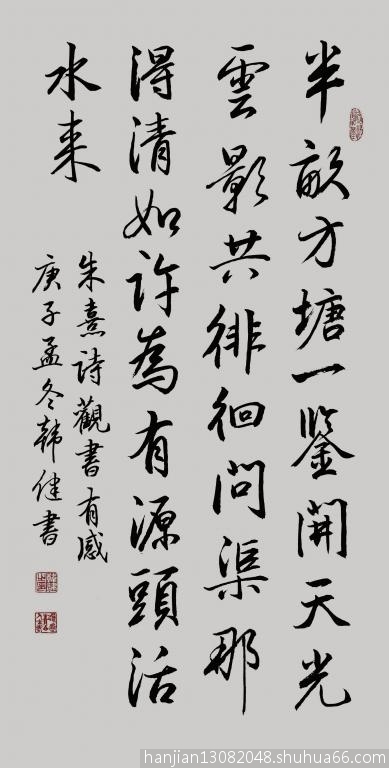 半畝方塘一鑒開天光
雲影共徘徊問渠那
得清如許為有源頭活
水来
朱熹詩觀書有感
庚子孟冬韩健書
hanjian13082048.shuhua66.com